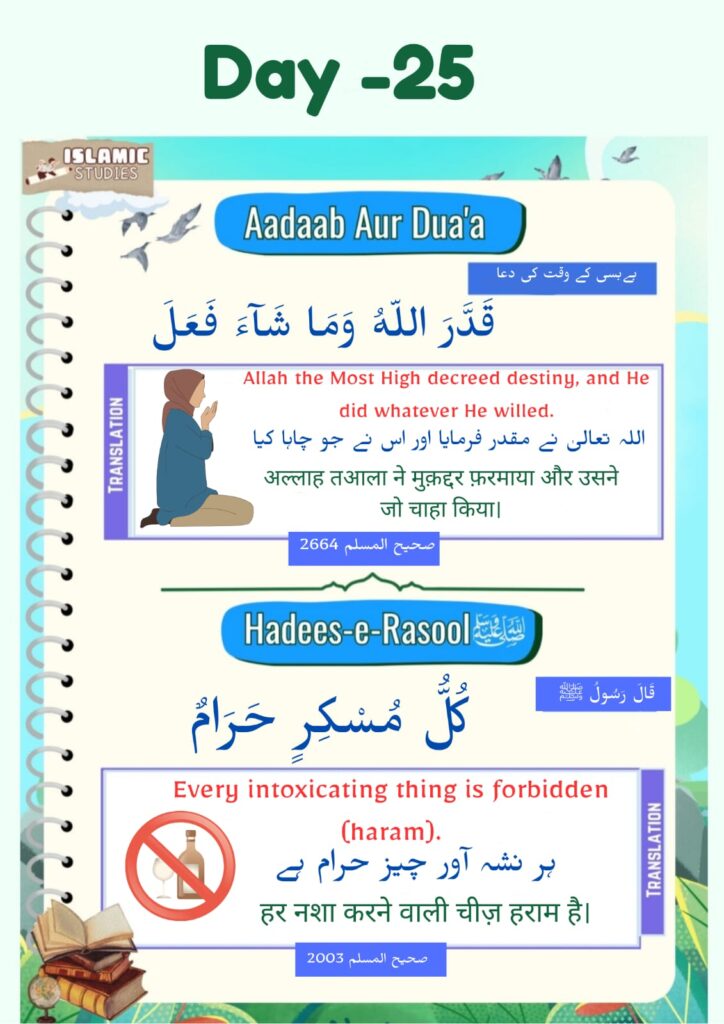 Day -25
ISLAMIC
STUDIES
Aadaab Aur Dua'a
بےبسی کے وقت کی دعا
قَدَّرَ اللّهُ وَمَا شَآءَ فَعَلَ
TRANSLATION
Allah the Most High decreed destiny, and He
did whatever He willed.
اللہ تعالیٰ نے مقدر فرمایا اور اس نے جو چاہا کیا
अल्लाह तआला ने मुक़द्दर फ़रमाया और उसने
जो चाहा किया।
صحیح المسلم 2664
Hadees-e-Rasool ﷺ
قَالَ رَسُولُ ﷺ
كُلُّ مُسْكِرٍ حَرَامٌ
Every intoxicating thing is forbidden
(haram).
ہر نشہ آور چیز حرام ہے
हर नशा करने वाली चीज़ हराम है।
TRANSLATION
صحیح المسلم 2003